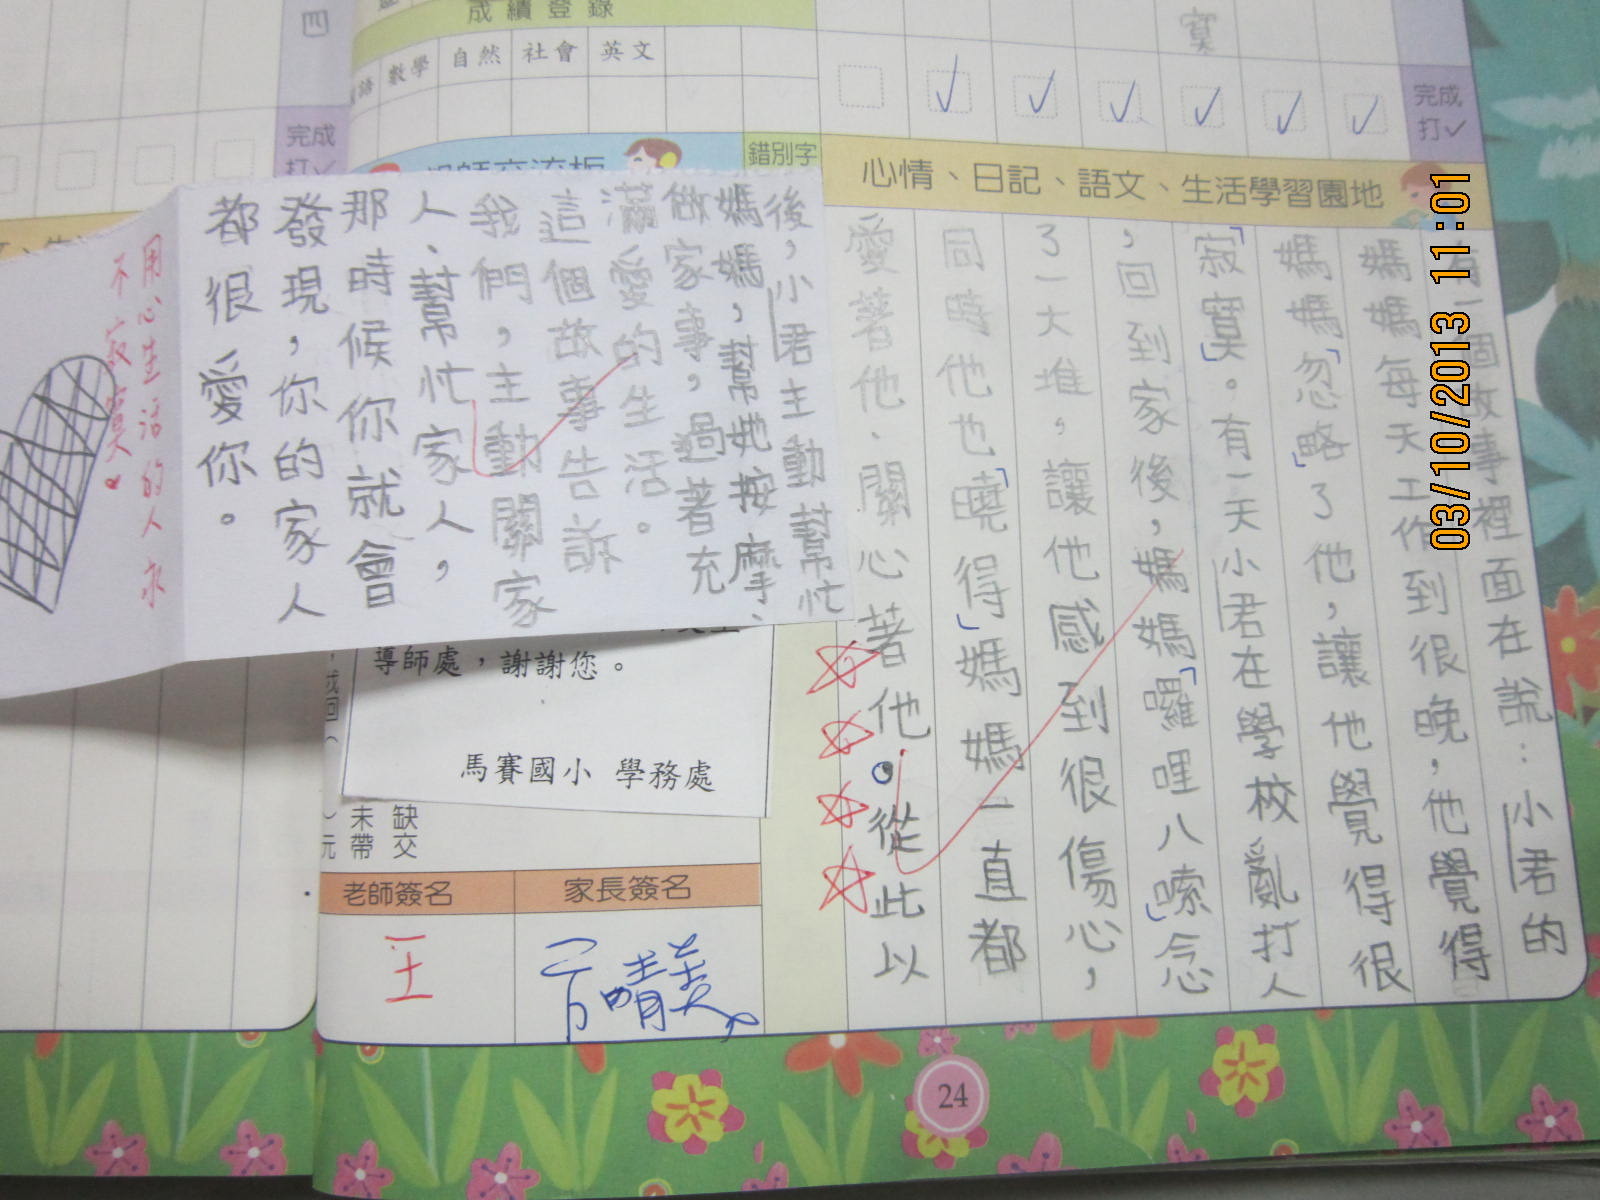 四
成績登錄
數學
自然
社會
英文
寞
完成
打✓
完成
打✓
錯別字
心情、日記、語文、生活學習園地
03/10/2013 11:01
有一個故事裡面在說:小君的
媽媽每天工作到很晚,他覺得
媽媽「忽略」了他,讓他覺得很
「寂寞」。有一天小君在學校亂打人
,回到家後,媽媽「囉哩八嗦」念
了一大堆,讓他感到很傷心,
同時他也「曉得」媽媽一直都
愛著他、關心著他。從此以
後,小君主動幫忙
媽媽,幫她按摩、
做家事,過著充
滿愛的生活。
這個故事告訴
我們,主動關家
人、幫忙家人,
那時候你就會
發現,你的家人
都很愛你。
用心生活的人永
不寂寞。
導師處,謝謝您。
馬賽國小 學務處
缺交
未帶
元
老師簽名
家長簽名
王
24